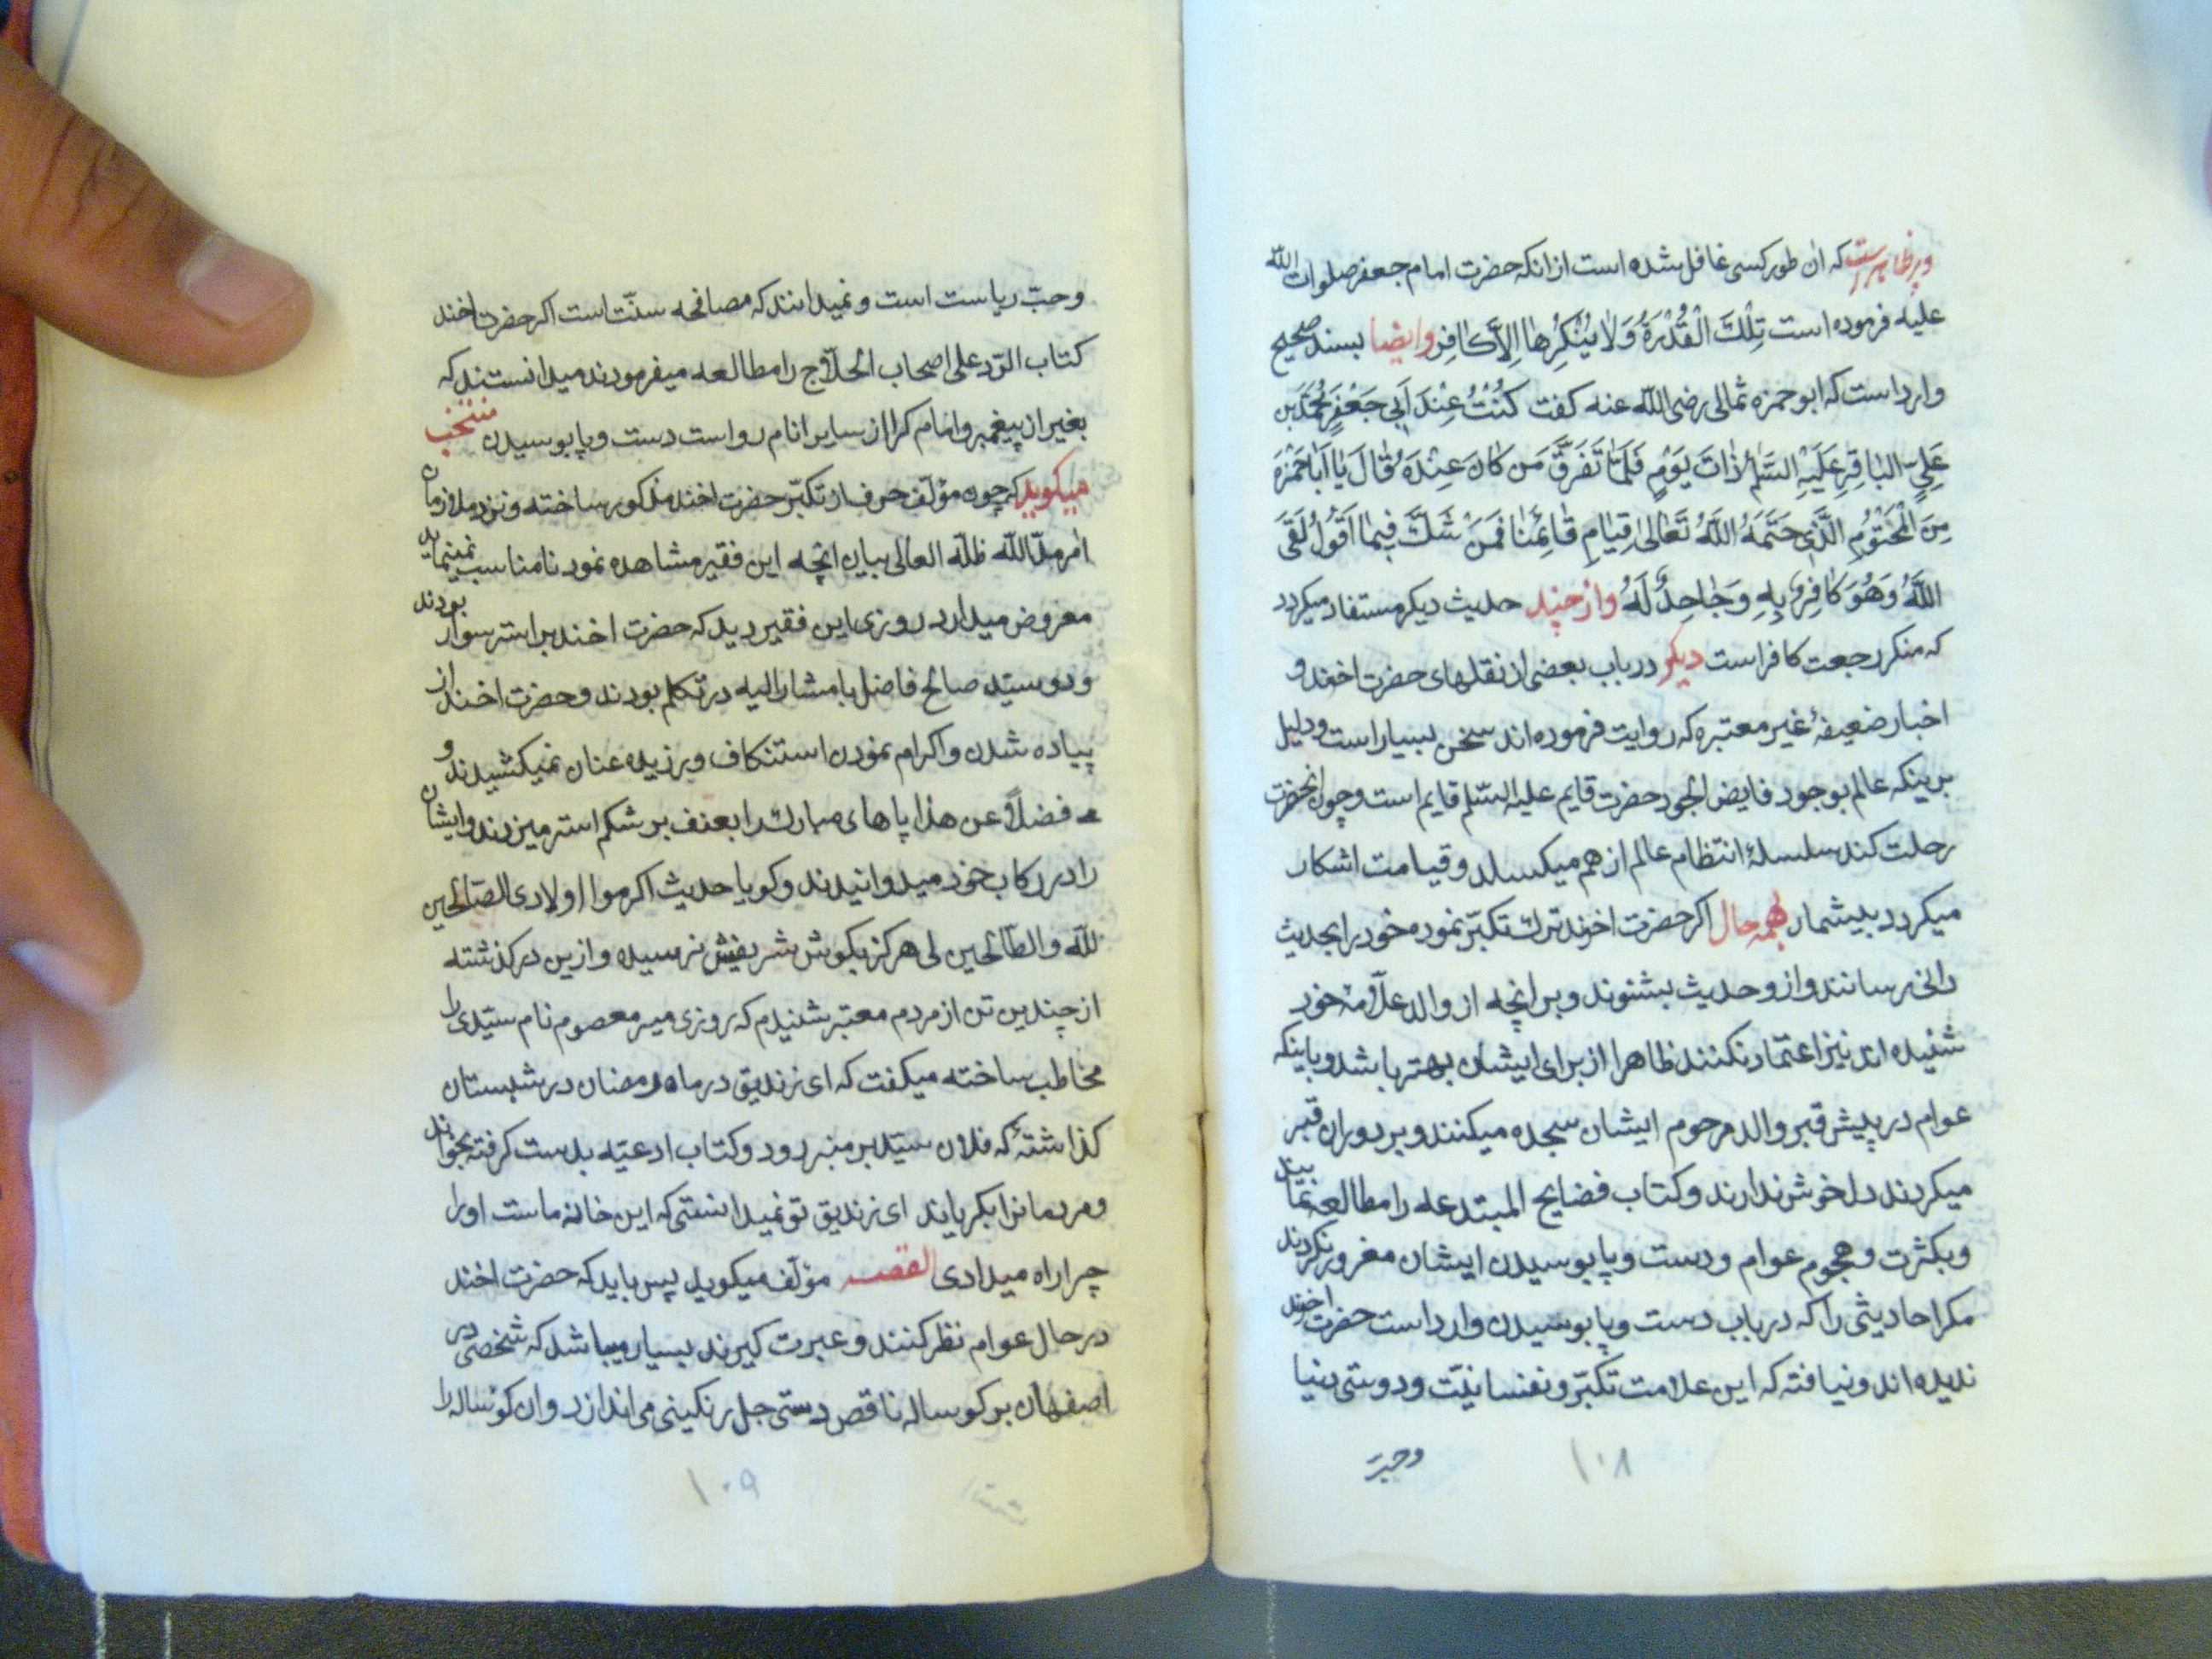 وپر ظاهر است که ان طور کسی غافل شده است از انکه حضرت امام جعفر صلوات الله
علیه فرموده است تِلْكَ الْقُدْرَةُ وَلاٰ یُنْكِرُهٰا اِلاَّ كٰافِر وایضا بسند صحیح
وارد است که ابو حمزه ثمالی رضی الله عنه کفت كُنْتُ عِنْدَ اَبِی جَعْفَرٍ مُحَمَّدِ بنِ
عَلِیٍّ الْبٰاقِرِ عَلَیْهِ السَّلٰمُ ذٰاتَ یَوْمٍ فَلَمّٰا تَفَرَّقَ مَن كٰانَ عِنْدَهُ قٰالَ یٰا اَبٰا حَمْزَةَ
مِنَ الْمَحْتُوْمِ الَّذِی حَتَّمَهُ اللّٰهُ تَعٰالیٰ قِیٰامِ قٰائِمُنٰا فَمَنْ شَكَّ فِیمٰا اَقُوْلُ لَقَیَ
اللّٰهُ وَهُوَ كٰافِرٌ بِهِ وَجٰاحِدٌ لَهُ وازچند حدیث دیکر مستفاد میکردد
که منکر رجعت کافر است دیکر درباب بعضی از نقلهای حضرت اخوند و
اخبار ضعیفهٔ غیر معتبره که روایت فرموده اند سخن بسیار است ودلیل
برینکه عالم بوجود فایض الجود حضرت قایم علیه السّلم قایم است وچون انحضرت
رحلت کند سلسلهٔ انتظام عالم از هم میکسلد و قیامت اشکار
میکردد بیشمار بهمه حال اکر حضرت اخوند ترك تکبّر نموده خود را بحدیث
دانی رسانند واز و حدیث بشنوند وبر انچه از والد علّامهٔ خود
شنیده اند نیز اعتماد نکنند ظاهرا از برای ایشان بهتر باشد وباینکه
عوام در پیش قبر والد مرحوم ایشان سجده میکنند وبر دوران قبر
میکردند دل خوش ندارند وکتاب فضایح المبتدعه را مطالعه نمایند
وبکثرت وهجوم عوام ودست وپا بوسیدن ایشان مغرور نکردند
مکر احادیثی را که درباب دست وپا بوسیدن وارد است حضرت اخوند
ندیده اند ونیافته که این علامت تکبّر ونفسانیّت ودوستی دنیا
وحبّ
۱۰۸
وحبّ ریاست است ونمیدانند که مصافحه سنّت است اکر حضرت اخند
کتاب الرّد علی اصحاب الحلّاج را مطالعه میفرمودند میدانستند که
بغیر از پیغمبر وامام کرا از سایر انام رواست دست وپا بوسیدن منتخب
میکوید که چون مؤلّف حرف از تکبّر حضرت اخند مذکور ساخته ونزد ملازمان
امر مدّ اللّه ظلّه العالی بیان انچه این فقیر مشاهده نمود نامناسب نمینماید
معروض میدارد روزی این فقیر دید که حضرت اخند بر استر سوار بودند
ودو سیّد صالح فاضل با مشار الیه در تکلم بودند وحضرت اخند از
پیاده شدن واکرام نمودن استنکاف ورزیده عنان نمیکشیدند و
فضلاً عن هذا پاهای مبارك را بعنف بر شکم استر میزدند وایشان
را در رکاب خود میدوانیدند وکویا حدیث اکرموا اولادی الصّالحین
للّٰه والطّالحین لی هرکز بکوش شریفش نرسیده وازین درکذشته
از چندین تن از مردم معتبر شنیدم که روزی میر معصوم نام سیّدی را
مخاطب ساخته میکفت که ای زندیق در ماه رمضان در شبستان
کذاشتهٔ که فلان سیّد بر منبر رود وکتاب ادعیّه بدست کرفته بخواند
ومردمانرا بکریاند ای زندیق تو نمیدانستی که این خانه ماست اورا
چرا راه میدادی القصه مؤلّف میکوید پس باید که حضرت اخند
در حال عوام نظر کنند وعبرت کیرند بسیار میباشد که شخصی در
اصفهان بر کوساله ناقص دستی جل رنکینی می اندازد وان کوساله را
۱۰۹